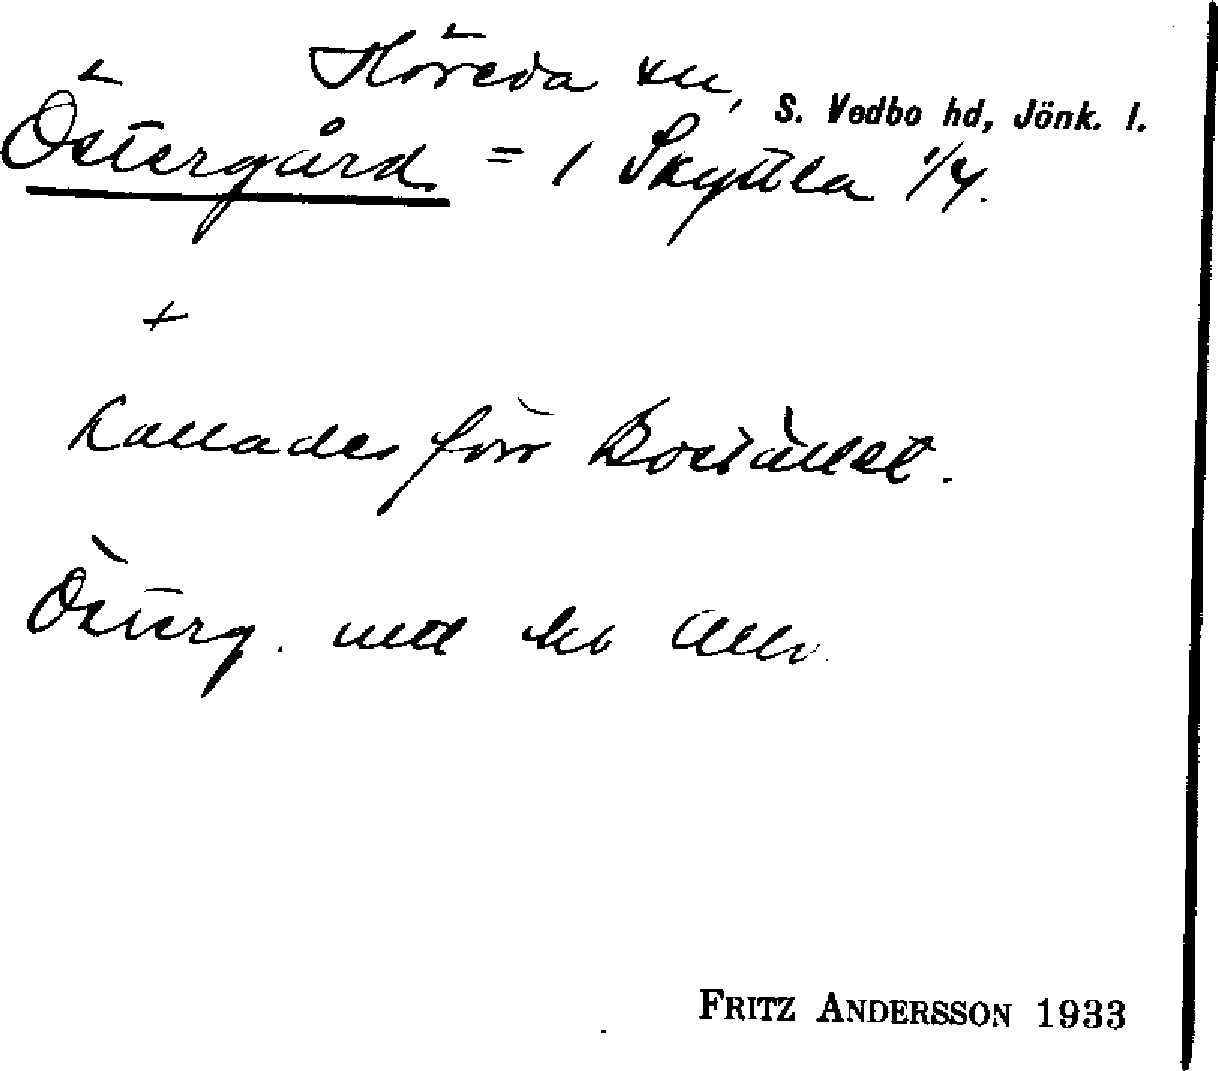 Höreda sn, S. Vedbo hd, Jönk. l.
Östergård = 1 Skyttla 1/4.
+
Kallades förr Bostället.
Österg.
FRITZ ANDERSSON 1933